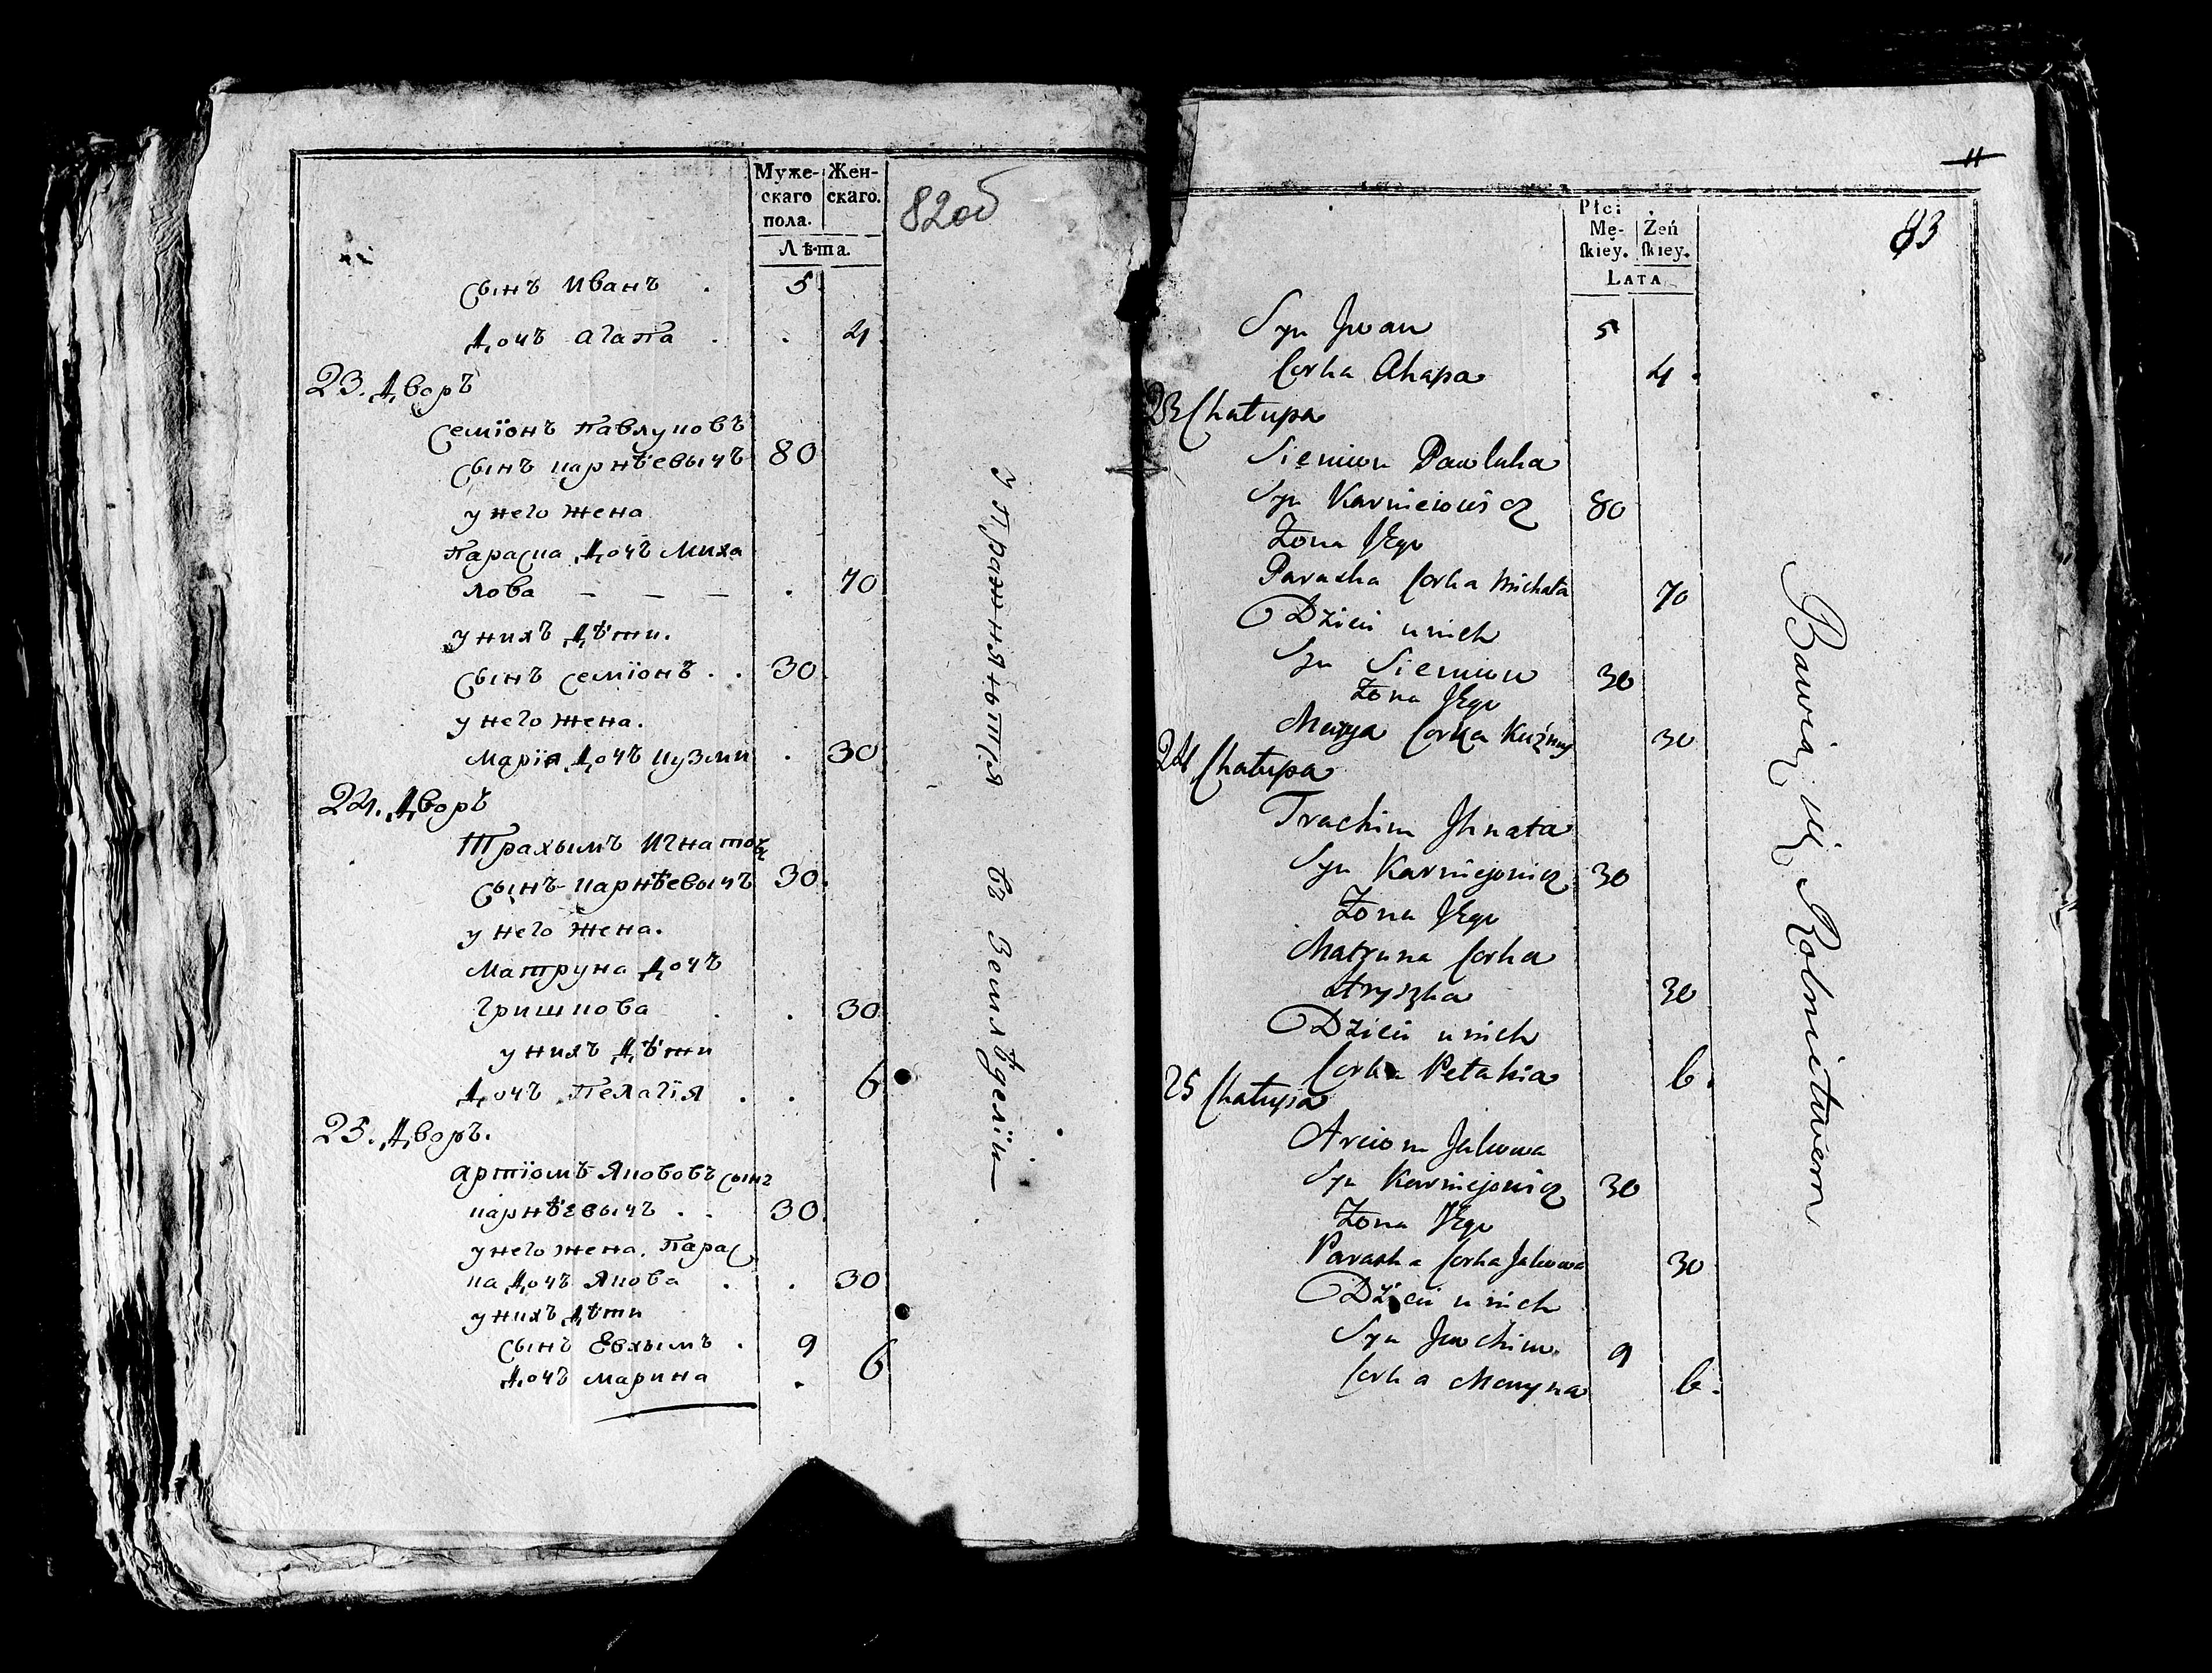 Муже-
скаго
пола.
Жен-
скаго.
Лѣта.
82об
сынъ иванъ . 5
дочъ агапа . . 4
23. дворъ
семіонъ павлуковъ
сынъ карнѣевычъ 80
у него жена
параска дочъ миха
лова — — — . 70
у нихъ дѣти.
сынъ семіонъ . . 30
у него жена.
марія дочъ кузми . 30
24. дворъ
трахымъ игнатовъ
сынъ карнѣевычъ 30
у него жена.
матруна дочъ
гришкова . . 30
у нихъ дѣти
дочъ пелагія . . 6
25. дворъ.
артіомъ якововъ сынъ
карнѣевычъ . . 30
у него жена. Парас
ка дочъ якова . . 30
у нихъ дѣти
сынъ Евхымъ . 9
дочъ марина . 6
упражняньтся въ Земледеліи
11
83
Płci
Mę-
skiey.
Żeń
skiey.
LATA
Syn Jwan 5
Corka Ahapa 4.
23 Chałupa
Siemion Pawluka
Syn Karnieiewicz 80
Żona Jego
Paraska Corka Michała 70
Dzieci u nich
Syn Siemion 30
Żona Jego
Marya Corka Kuźmy 30
24 Chałupa
Trachim Jhnata
Syn Karniejewicz 30
Żona Jego
Matruna Corka
Hryszka 30
Dzieci u nich
Corka Pełahia 6.
25 Chałupa
Arciom Jakowa
Syn Karniejewicz 30
Żona Jego
Paraska Corka Jakowa 30
Dzieci u nich
Syn Jwchim 9
Corka Maryna 6.
Bawią się Rolnictwem